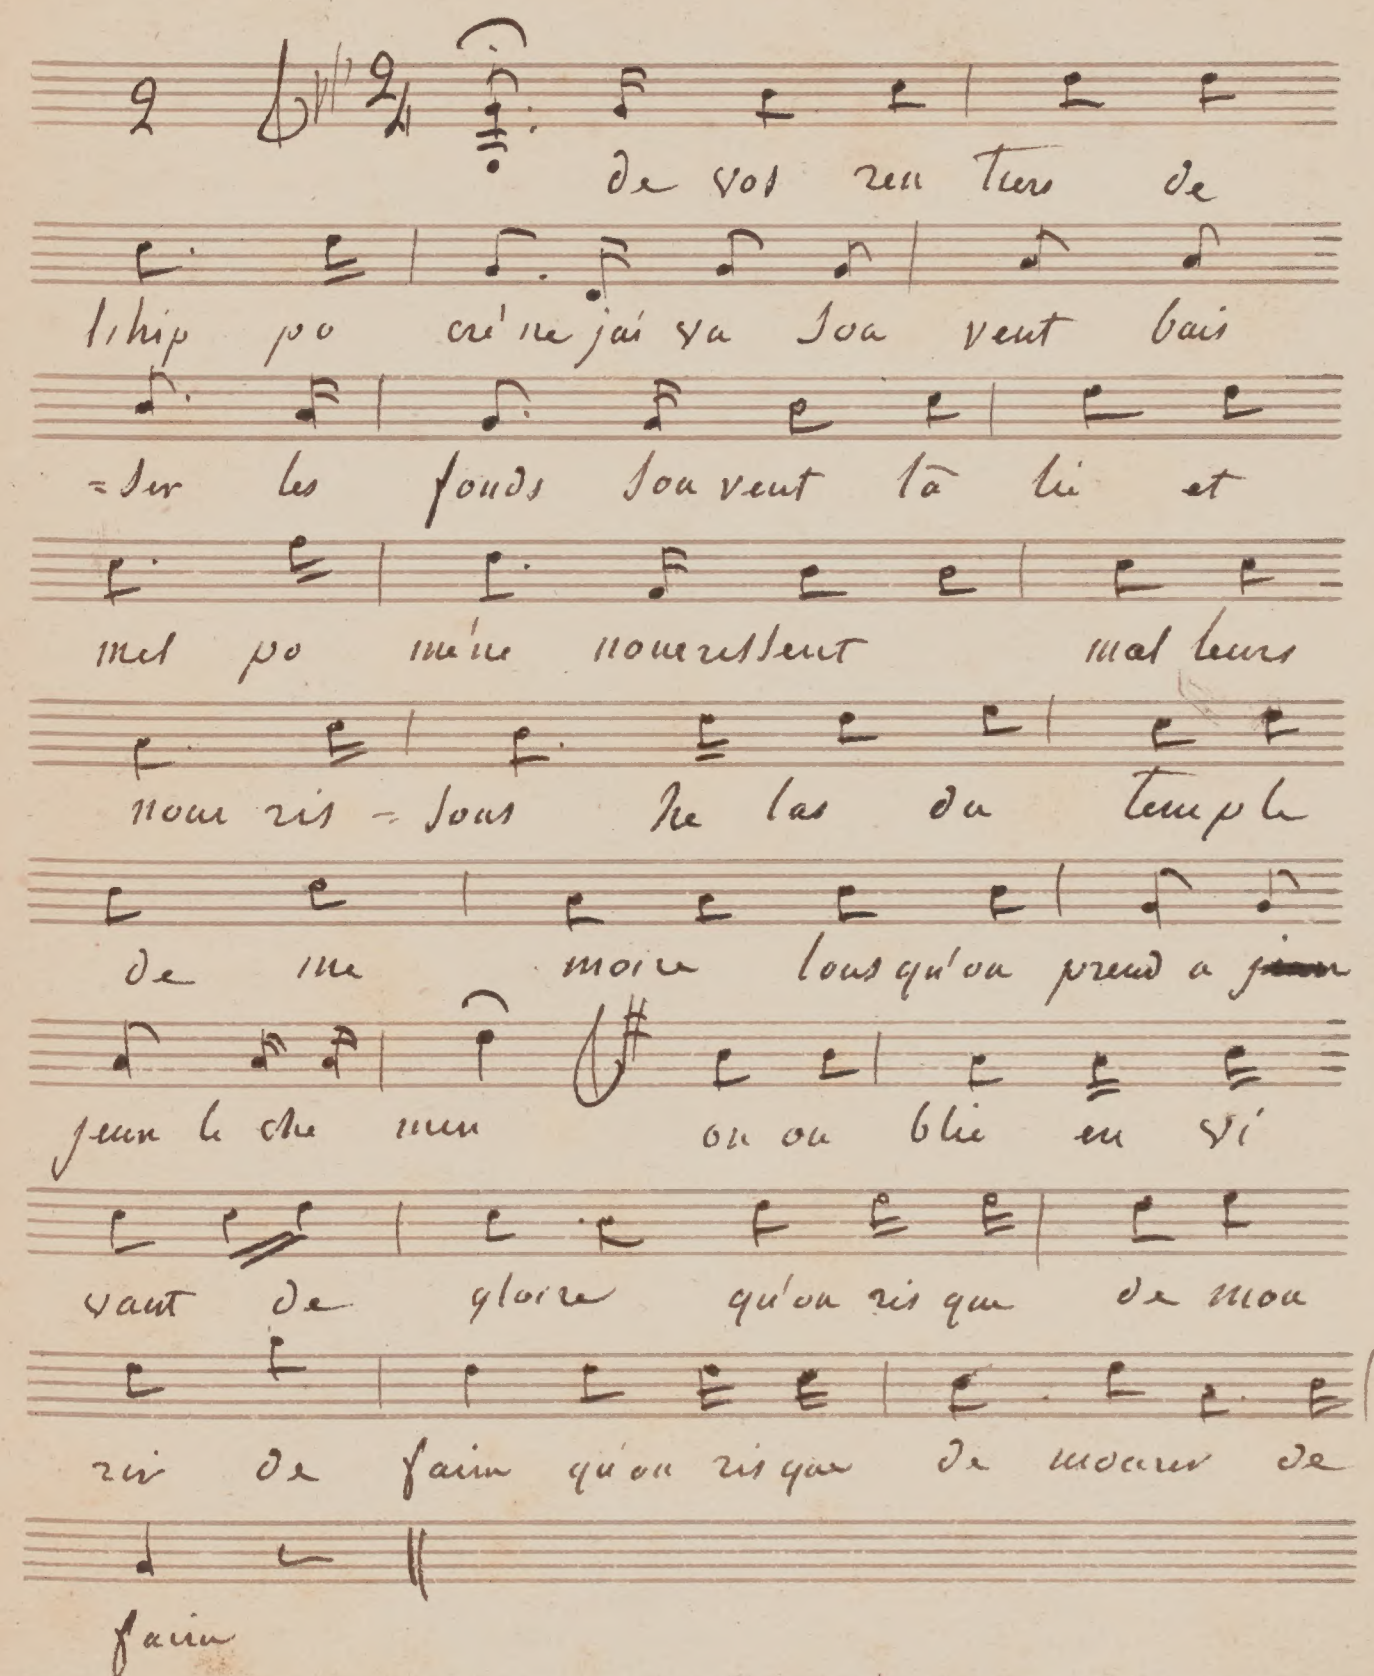 2 2/4
de vos ren tiers de
l'hip po cré ne j'ai vu sou vent bais
=ser les fonds sou vent ta lie et
mel po mé ne nourissent mal leurs
nour ris = sons he las du temple
de me moire lors qu'on prend a
jeun le che min on ou blie en vi
vant de gloire qu'on ris que de mou
rir de faim qu'on ris que de mourir de
faim